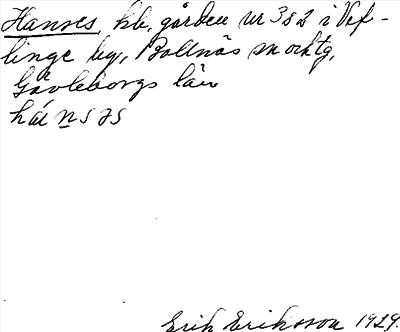 Hanses hb, gården nr 3 & 2 i Vef-
linge by, Bollnäs sn o. ktg,
Gävleborgs län
Erik Eriksson 1929.